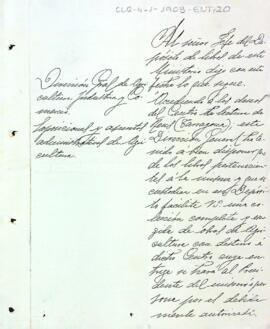 CLR-4-1-1903-EUT/20
Dirección Gral de Agri
cultura, Industria y Co
mercio.
Al señor Jefe del De
pósito de libros de este
Ministerio digo con esta
fecha lo que sigue.
"Accediendo a los deseos
del Centro de lectura de
Reus (Tarragona), esta
Dirección General ha te
nido á bien disponer
de los libros pertenecien
tes á la misma y que se
custodian en ese Depó
sito facilite V. una co
lección completa y en
cultura con destino á
dicho Centro cuya en
trega se hará al Presi
dente del mismo ó per
sona por él debida
mente autorizada.